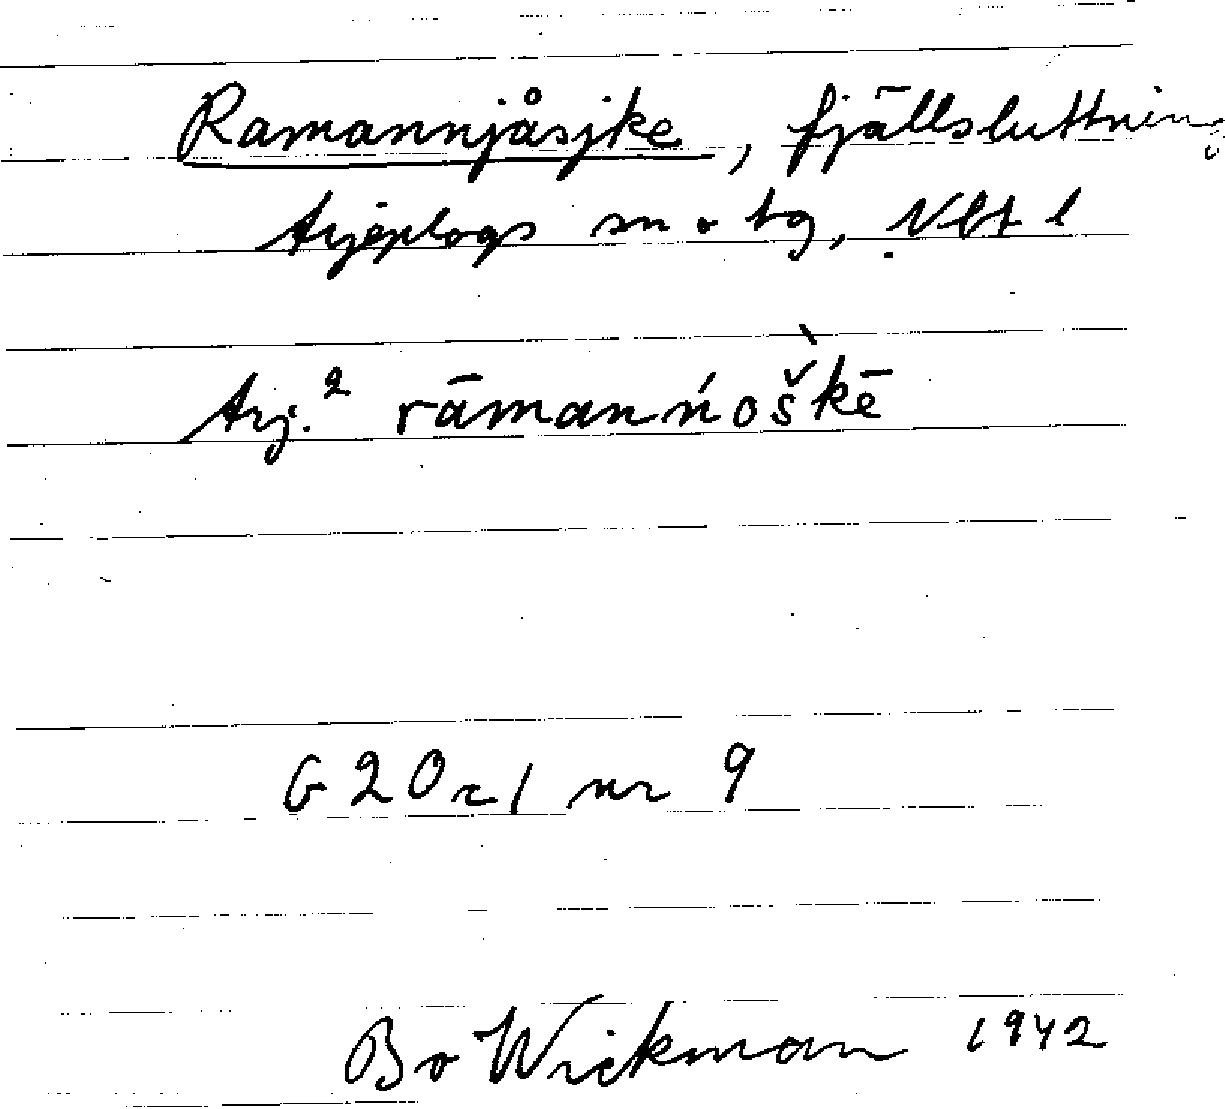 Ramannjåsjke, fjällsluttning
Arjeplogs sn o tg, Vbt l
Arj.² rāmanńoš̀kē
G 20 c/ nr 9
Bo Wickman 1942